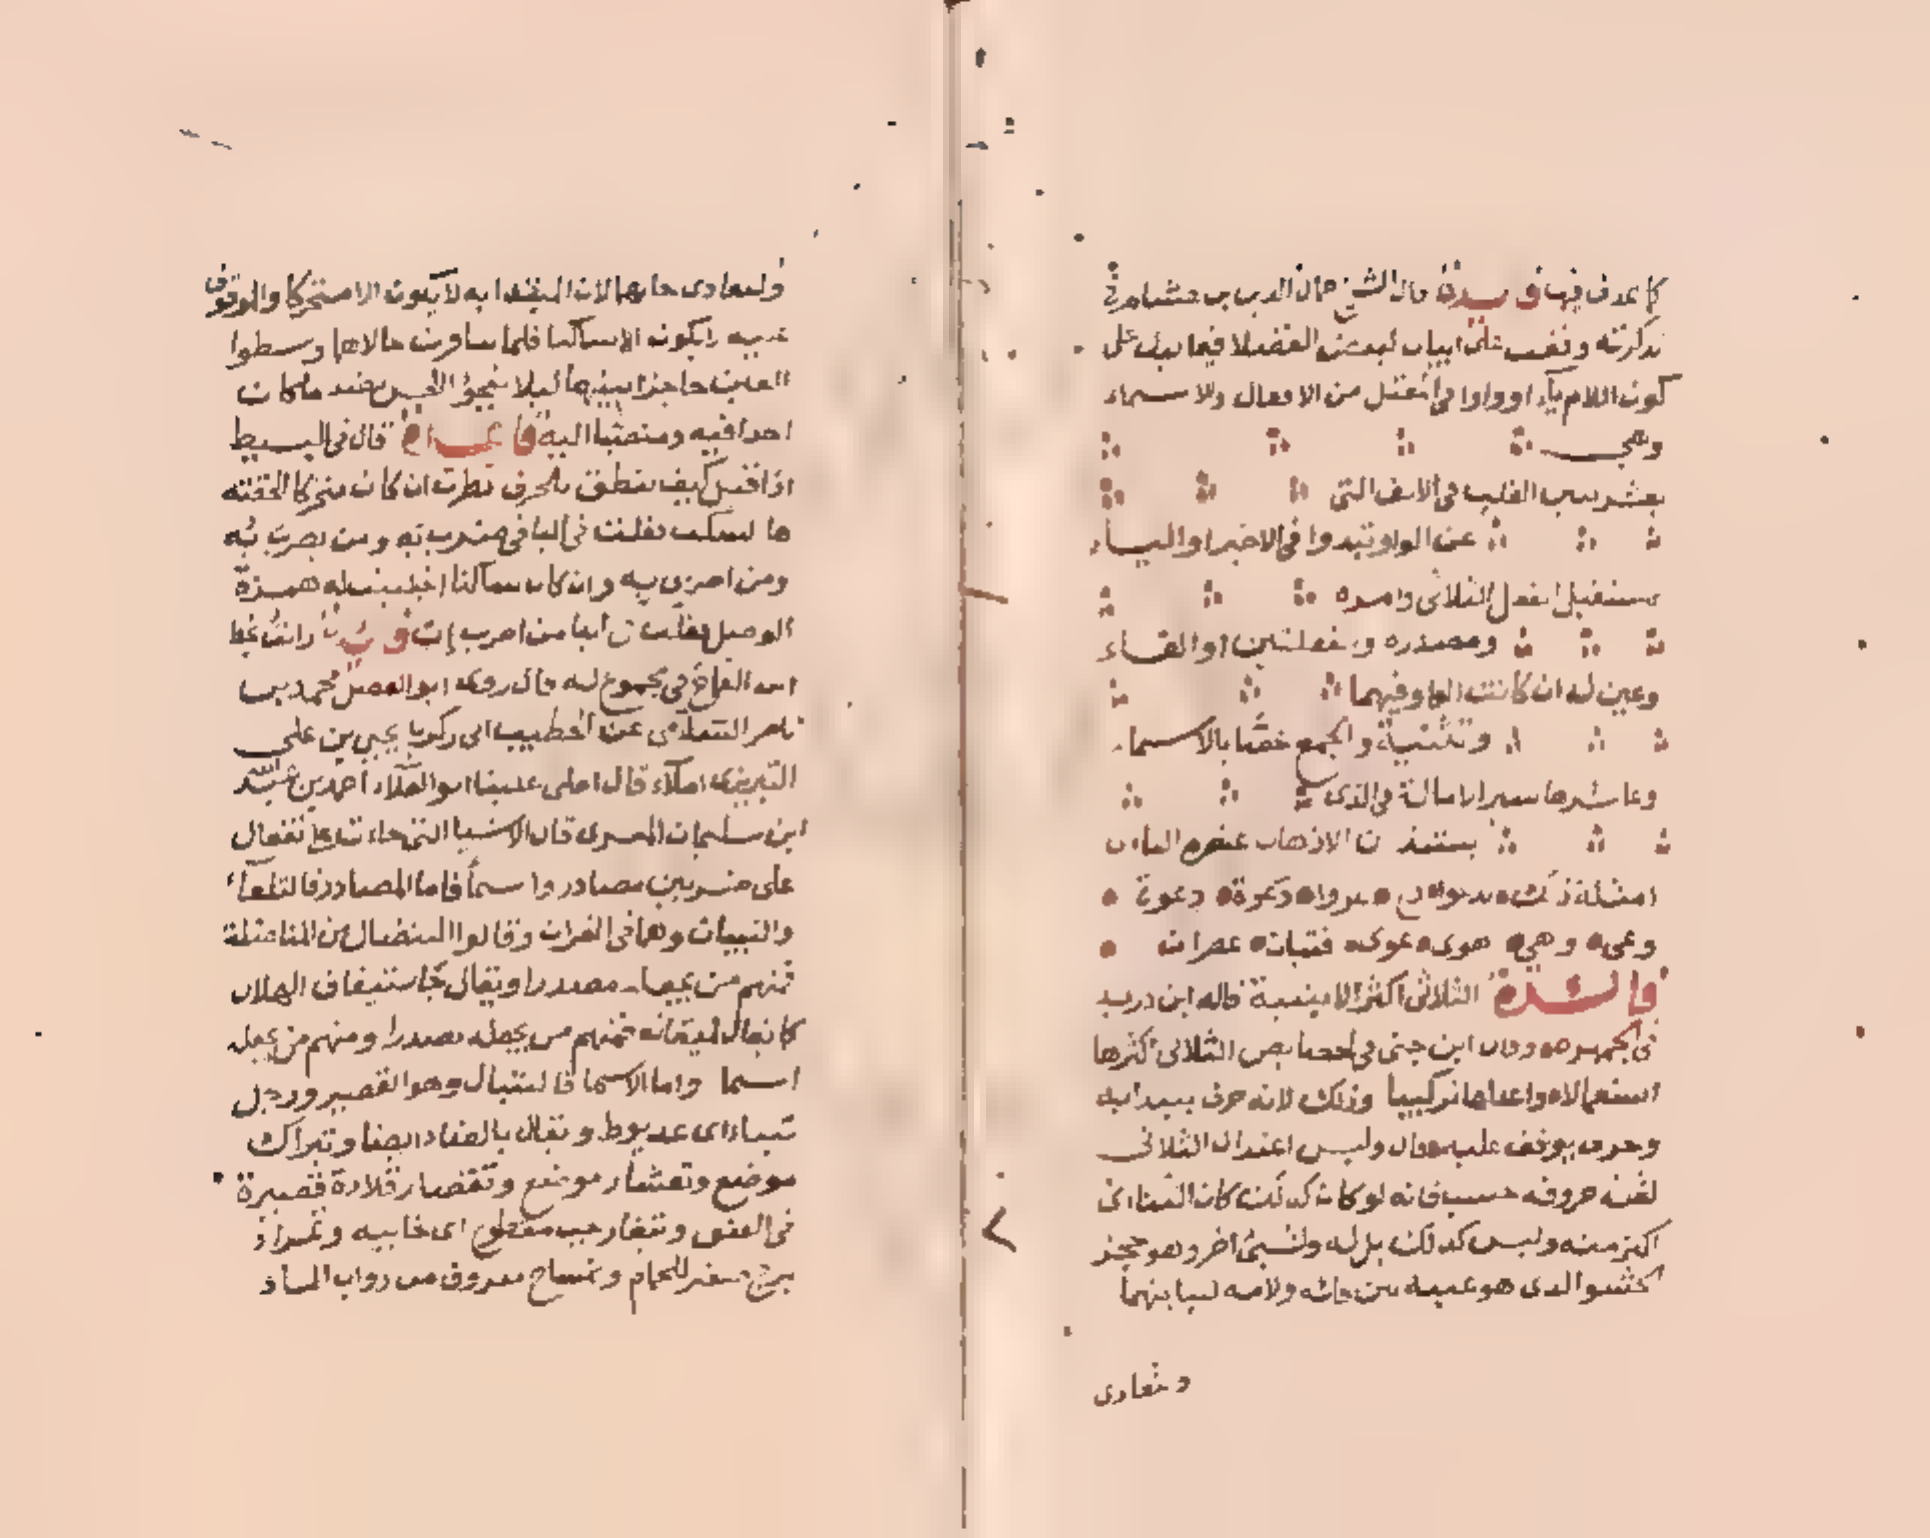 كما عدف فيها فايدة قال الشيخ جمال الدين بن هشام في
تذكرته وقفت على ابيات لبعض الفضلا فيما يدل على
كون اللام ياء او واوا في المعتل من الافعال والاسماء
وهي
بعشر يبين القلب في الالف التي
عن الواو تبدوا في الاخير او الياء
بمستقبل الفعل الثلاثي وامره
ومصدره وبفعلتين او الفاء
وعين له ان كانت الواو فيهما
وتثنية والجمع خصا بالاسماء
وعاشرها سير الامالة في الذي
يستنذ ن الاذهاب عنصره الناءى
امثلة ذلك يدعو
وعى وهى هوى عوى فتيات عصوات
فايدة الثلاثي اكثر الابنية قاله ابن دريد
في الجمهره وقال ابن جني في الخصايص الثلاثي اكثرها
استعمالا واعدلها تركيبا وذلك لانه حرف يبدا به
وحرف يوقف عليه قال وليس اعتدال الثلاثي
لقلة حروفه حسب فانه لو كان كذلك كان الثنائى
اكثر منه وليس كذلك بل له ولشىء اخر وهو حجز
الحشو الذى هو عينه بين فائه ولامه لتباينهما
وتعادى
ولتعادى حاليهما لان المبتدا به لا يكون الا متحركا والموقوف
عليه لا يكون الا ساكنا فلما تنافرت حالاهما وسطوا
العين حاجزا بينهما ليلا يفجؤا الحس بضد ما كان
اخذا فيه ومنصبا اليه فايدة قال في البسيط
اذا قيل كيف ينطق بالحرف نظرت ان كان متحركا الحقته
ها السكت فقلت في البا في ضرب به ومن يضرب به
ومن اضرب به وان كان ساكنا اجتلبت له همزة
الوصل فقلت في البا من اضرب إب فايدة رايت بخط
ابن القماح في مجموع له قال روى ابو الفضل محمد بن
ناصر السلامي عن الخطيب ابى زكريا يحيى بن على
التبريزى املاء قال املى علينا ابو العلاء احمد بن عبد الله
ابن سليمان المعرى قال الاشيا التى جاءت على تفعال
على ضربين مصادر واسماء فاما المصادر فالتلقاء
والتبيان وهما في القران وقالوا التنضال من المناضلة
فمنهم من يجعله مصدرا ويقال جا لتيفاق الهلال
كما يقال لميقاته فمنهم من يجعله مصدرا ومنهم من يجعله
اسما واما الاسما فالتنبال وهو القصير ورجل
تيتاء اى عذيوط ويقال بالضاد ايضا وتبراك
موضع وتعشار موضع وتقصار قلادة قصيرة
في العنق وتيغار حب مقطوع اى خابيه وتمراد
برج صغير للحمام وتمساح معروف من دواب الماء